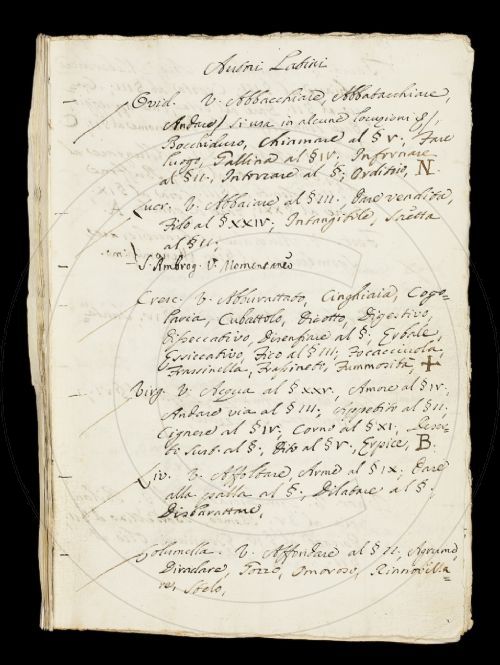 Autori Latini
Ovid. V. Abbacchiare, Abbatacchiare,
Andare / si usa in alcune locuzioni §/,
Bocchiduro, Chiamare al § V; Fare
luogo, Gallina al § IV; Infornare
al § II; Intorzare al §; Ordito, N
Lucr. V. Abbaiare al § III; Dare vendita,
Filo al § XXIV; Intangibile, Saetta
al § II;
S. Ambrog. V. Momentaneo
Cresc. V. Abburattato, Cinghiaia, Cogo-
laria, Cubattolo, Dicotto, Digestivo,
Disseccativo, Disenfiare al §, Erbale,
Essiccativo, Fico al § III; Focacciuola,
Frassinella, Frassineto, Fummosità, +
Virg. V. Acqua al § XXV, Amore al § IV;
Andare via al § III; Appetito al § II;
Cignere al § IV; Corno al § XI; Levan-
te Sust. al §. Dito al § V. Erpice, B
Liv. V. Affoltare, Arme al § IX; Dare
alla palla al §. Dilatare al §.
Disbarattare,
Columella. V. Affondare al § II. Agrume
Diradare, Pozzo, Omoroso, Rinnovella-
re, Stelo,